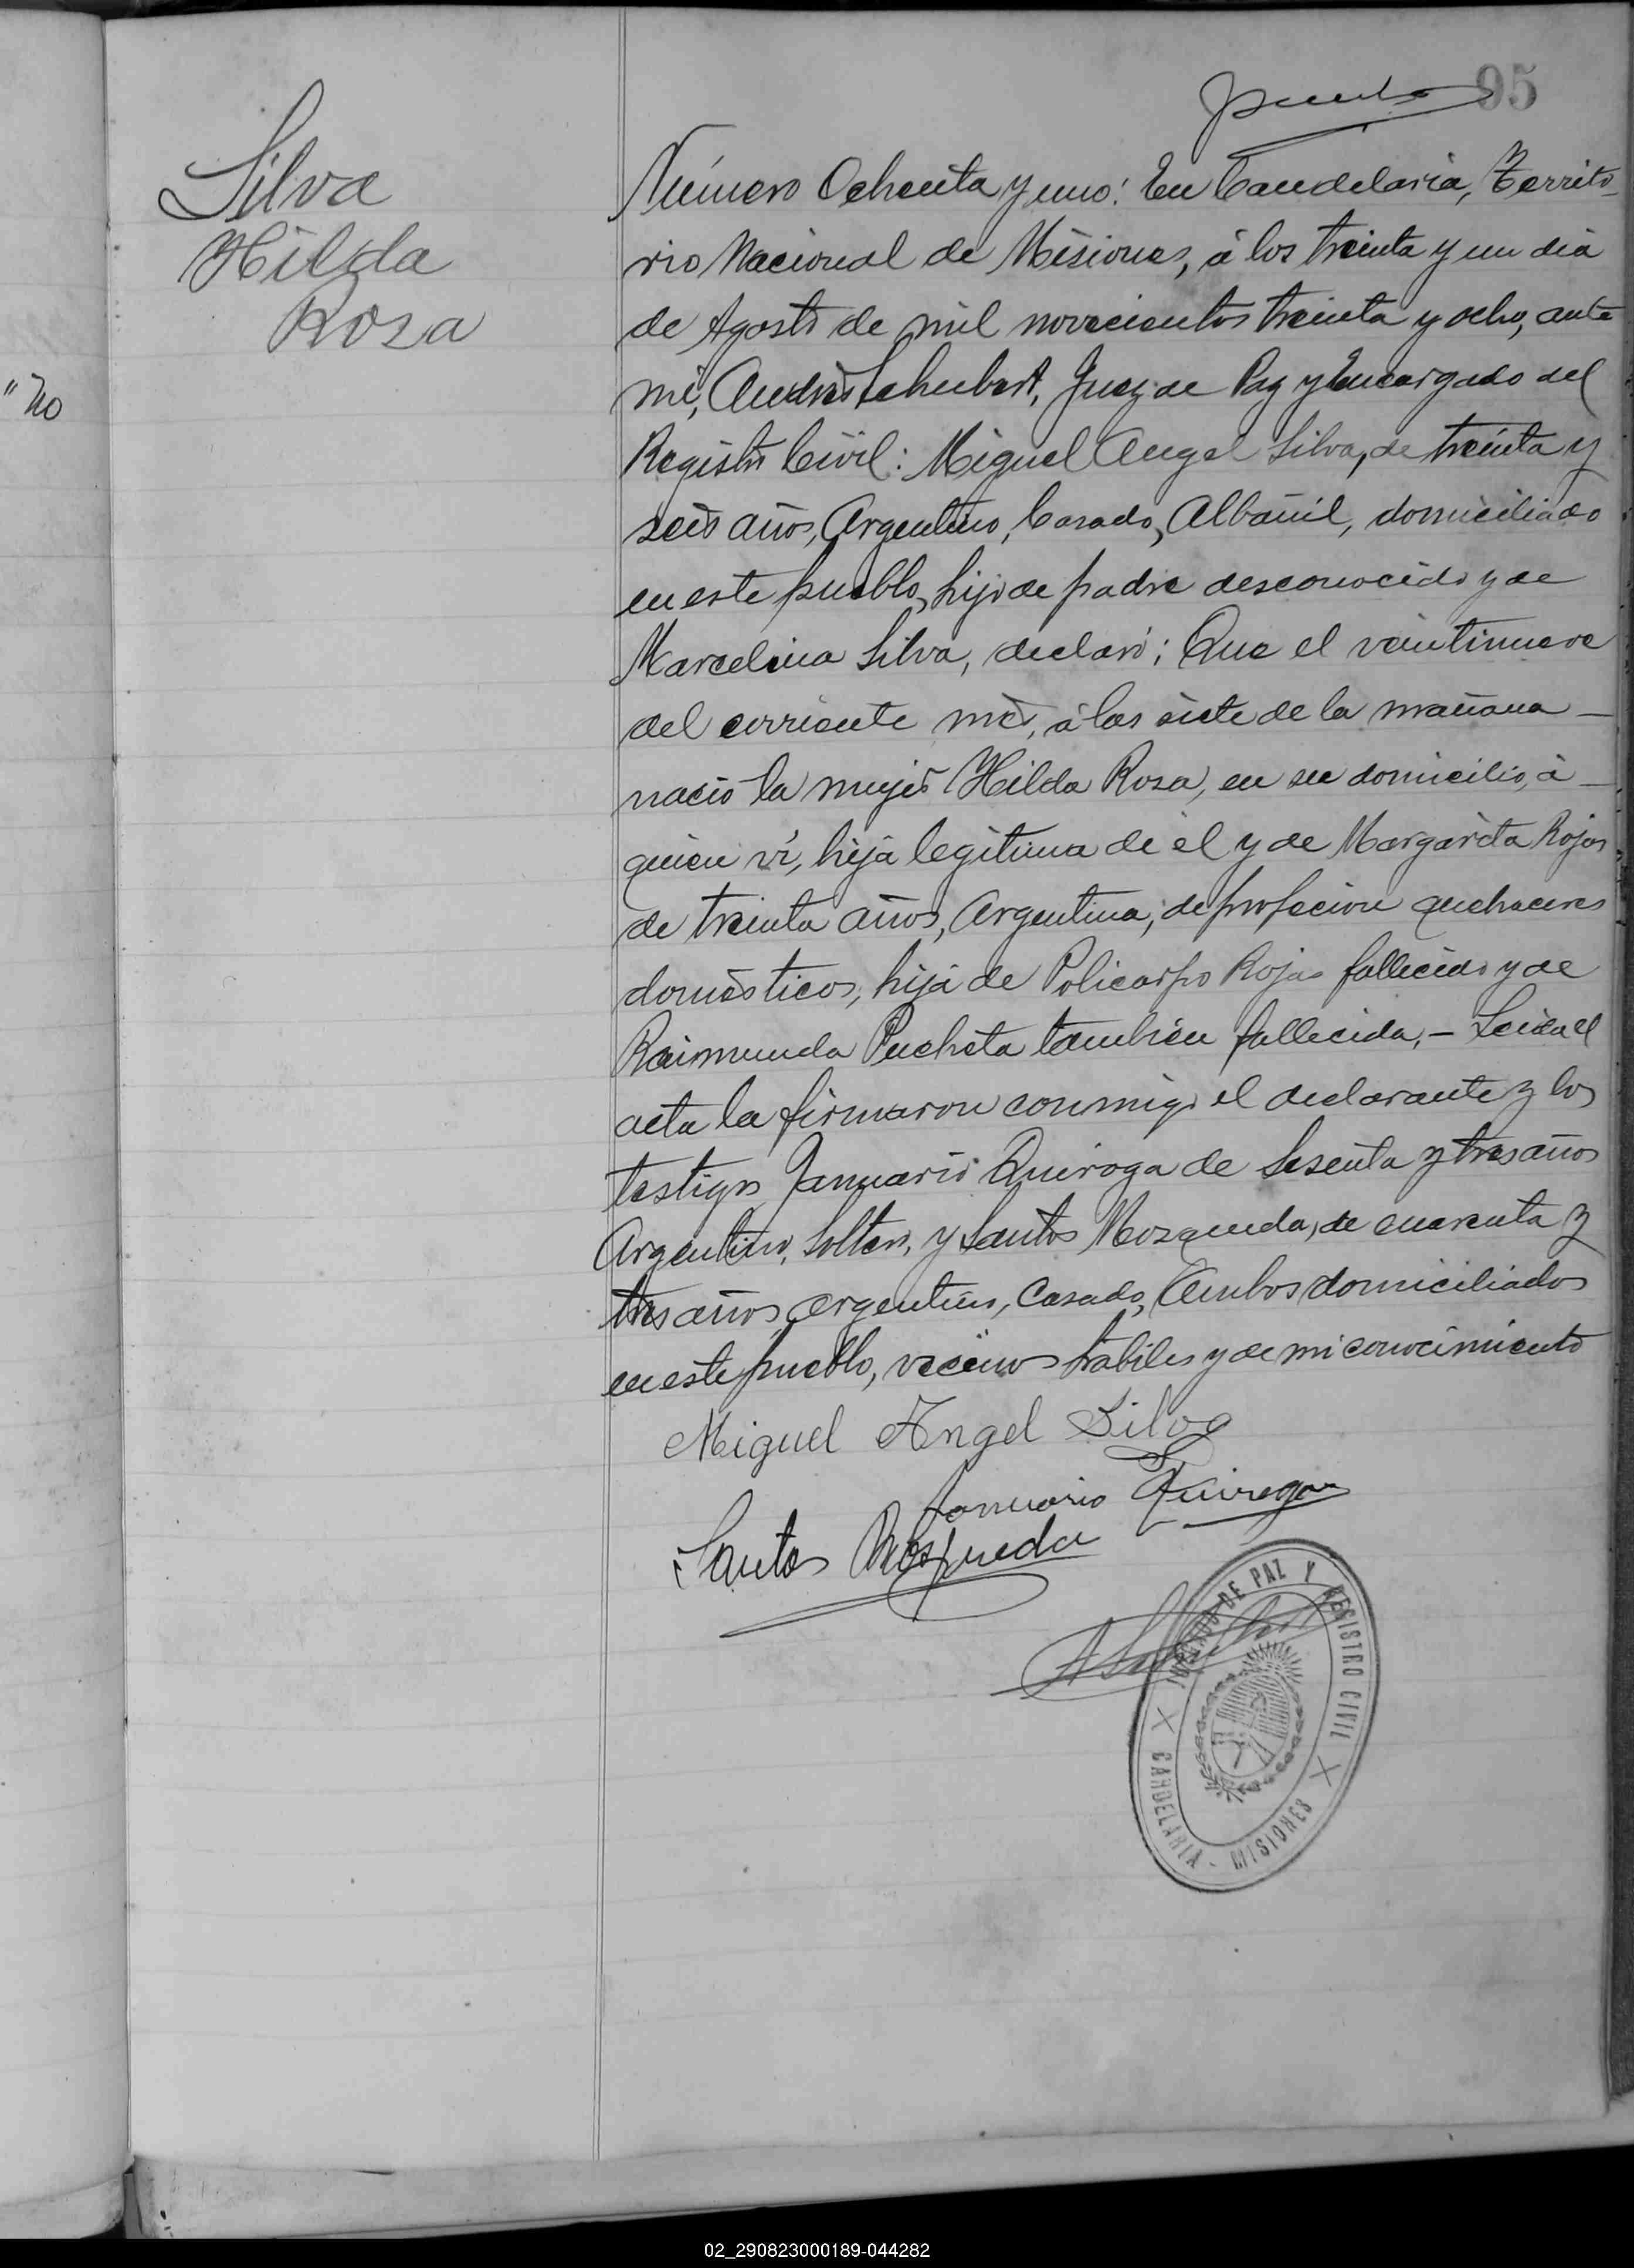 95
Silva
Hilda
Rosa
"No
Número Ochenta y uno: En Candelaria, Territo-
rio Nacional de Misiones, á los treinta y un dia
de Agosto de mil novecientos treinta y ocho, ante
mi, Andrés Schubert, Juez de Paz y Encargado del
Registro Civil: Miguel Angel Silva, de treinta y
seis años, Argentino, Casado, Albañil, domiciliado
en este pueblo, hijo de padre desconocido y de
Marcelina Silva, declaró: Que el veintinueve
del corriente més, á las siete de la mañana —
nació la mujer Hilda Rosa, en su domicilio, á —
quien ví, hija legitima de él y de Margarita Rojas
de treinta años, Argentina, de profecion quehaceres
domésticos, hija de Policarpo Rojas fallecido y de
Raimunda Pucheta tambien fallecida. - Leida el
acta la firmaron conmigo el declarante y los
testigos Januario Quiroga de Sesenta y tres años
Argentino, Soltero, y Santos Mosqueda, de cuarenta y
tres años, argentino, Casado, Ambos domiciliados
en este pueblo, vecinos habiles y de mi conocimiento
Miguel Angel Silva
Januario Quiroga
Santos Mosqueda
JUZGADO DE PAZ Y REGISTRO CIVIL
CANDELARIA - MISIONES
02_290823000189-044282